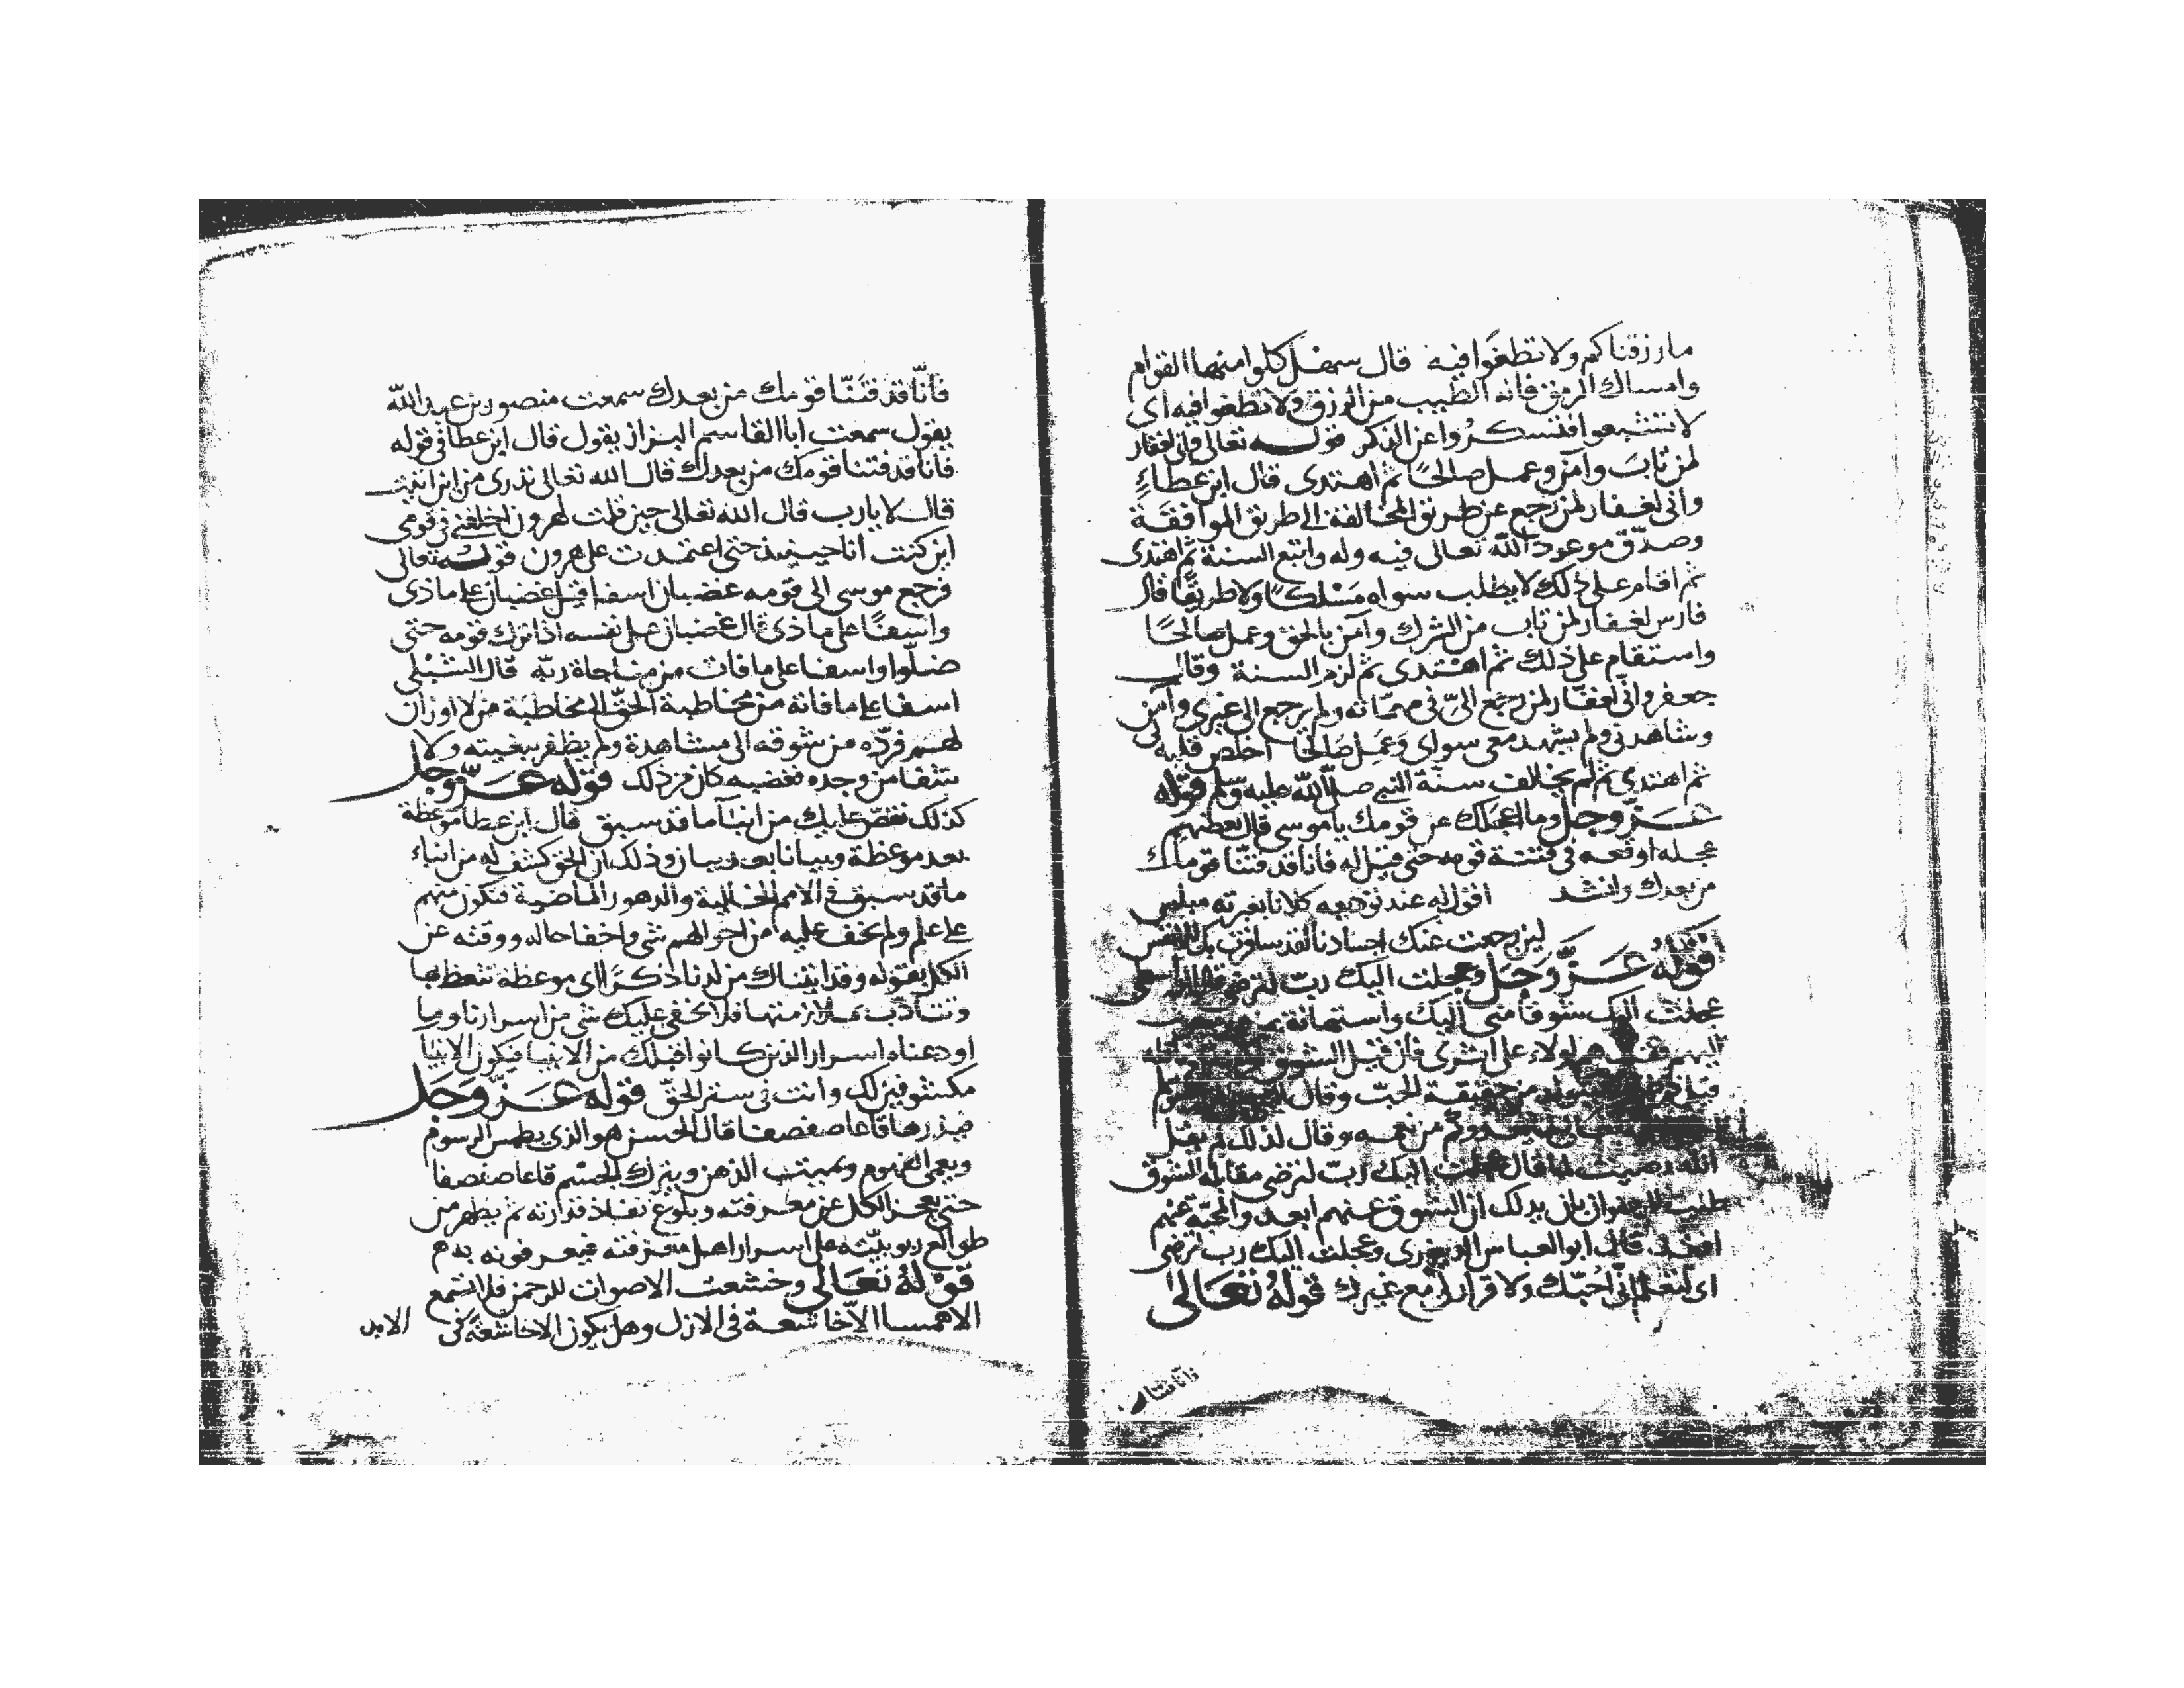 ما رزقناكم ولا تطغوا فيه قال سهل كلوا منها القوام
وامساك الرمق فانه الطيب من الرزق ولا تطغوا فيه اى
لا تشبعوا فتسكروا عن الذكر قوله تعالى وانى لغفار
لمن تاب وآمن وعمل صالحًا ثم اهتدى قال ابن عطاء
وانى لغفار لمن رجع عن طريق المخالفة الى طريق الموافقة
وصدّق موعود الله تعالى فيه وله واتبع السنة ثم اهتدى
ثم اقام على ذلك لا يطلب سواه مسلكًا ولا طريقًا قال
فارس لغفار لمن تاب من الشرك وآمن بالحق وعمل صالحًا
واستقام على ذلك ثم اهتدى ثم لزم السنة وقال
جعفر وانّى لغفّار لمن رجع الىّ فى مهمّاته ولم يرجع الى غيرى وآمن
وشاهدنى ولم يشهد معى سواى وعمل صالحًا اخلص قلبه لى
ثم اهتدى ثم لم يخالف سنة النبى صلى الله عليه وسلم قوله
عزّ وجلّ وما اعجلك عن قومك يا موسى قال بعضهم
عجله اوقعه فى فتنة قومه حتى قيل له فانا قد فتنّا قومك
من بعدك وانشد اقول له عند توديعه كلانا بعبرته مبلس
لين رجعت عنك اجسادنا لقد سافرت بك الانفس
قوله عزّ وجل وعجلت اليك ربّ لترضى
عجلت اليك شوقا منى اليك واستهانة
اليهم هم اولاء على اثرى فان قيل الشوق
قيل من حقيقة الحبّ وقال
من نعمه وقال لذلك لم يقل
الله رضيت قال عجلت اليك ربّ لترضى مقابله الشوق
بان بدلك ان الشوق عنهم ابعد والمحبة عنهم
قال ابو العباس الدينورى وعجلت اليك رب لترضى
اى لتعلم انّى احبّك ولا قرار لى مع غيرك قوله تعالى
فانّا قد فتنّا قومك من بعدك سمعت منصور بن عبد الله
يقول سمعت ابا القاسم البزاز يقول قال ابن عطا فى قوله
فانا قد فتنا قومك من بعدك قال الله تعالى تدرى من اين اتيت
قال لا يا رب قال الله تعالى حين قلت لهرون اخلفنى فى قومى
اين كنت انا حينيذ حتى اعتمدت على هرون قوله تعالى
فرجع موسى الى قومه غضبان اسفا قيل غضبان على ما ذى
واسفًا على ما ذى قال غضبان على نفسه اذا ترك قومه حتى
ضلّوا واسفا على ما فات من مناجاة ربّه قال الشبلى
اسفا على ما فاته من مخاطبة الحقّ الى مخاطبة من لا اوزان
لهم فردّه من شوقه الى مشاهدة ولم يظفر ببغيته ولا
تشفا من وجده فغضبه كان من ذلك قوله عزّ وجل
كذلك نقصّ عليك من انبآ ما قد سبق قال ابن عطا موعظة
بعد موعظة وبيانا بعد بيان وذلك ان الحق كشف له من انباء
ما قد سبق فى الامم الخالية والدهور الماضية فتكون منهم
على علم ولم يخف عليه من احوالهم شى واخفا حاله ووقته عن
الكل بقوله وقد اتيناك من لدنا ذكرًا اى موعظة تتعظ بها
وتتأدّب بملازمتها فلا تخفى عليك شى من اسرارنا وما
اودعناه اسرار الذين كانوا قبلك من الانبيا فيكون الانبيا
مكشوفين لك وانت فى ستر الحقّ قوله عزّ وجل
فيذرها قاعا صفصفا قال الحسن هو الذى يطمس الرسوم
ويعمى الفهوم ويميت الذهن ويترك الجسم قاعا صفصفا
حتى يعجز الكل عن معرفته وبلوغ نفاذ قدارته ثم يظهر من
طوالع ربوبيّته على اسرار اهل معرفته فيعرفونه بدهم
قوله تعالى وخشعت الاصوات للرحمن فلا تسمع
الا همسا الا خاشعة فى الازل وهل يكون الا خاشعة فى الابد
فانا فتنا